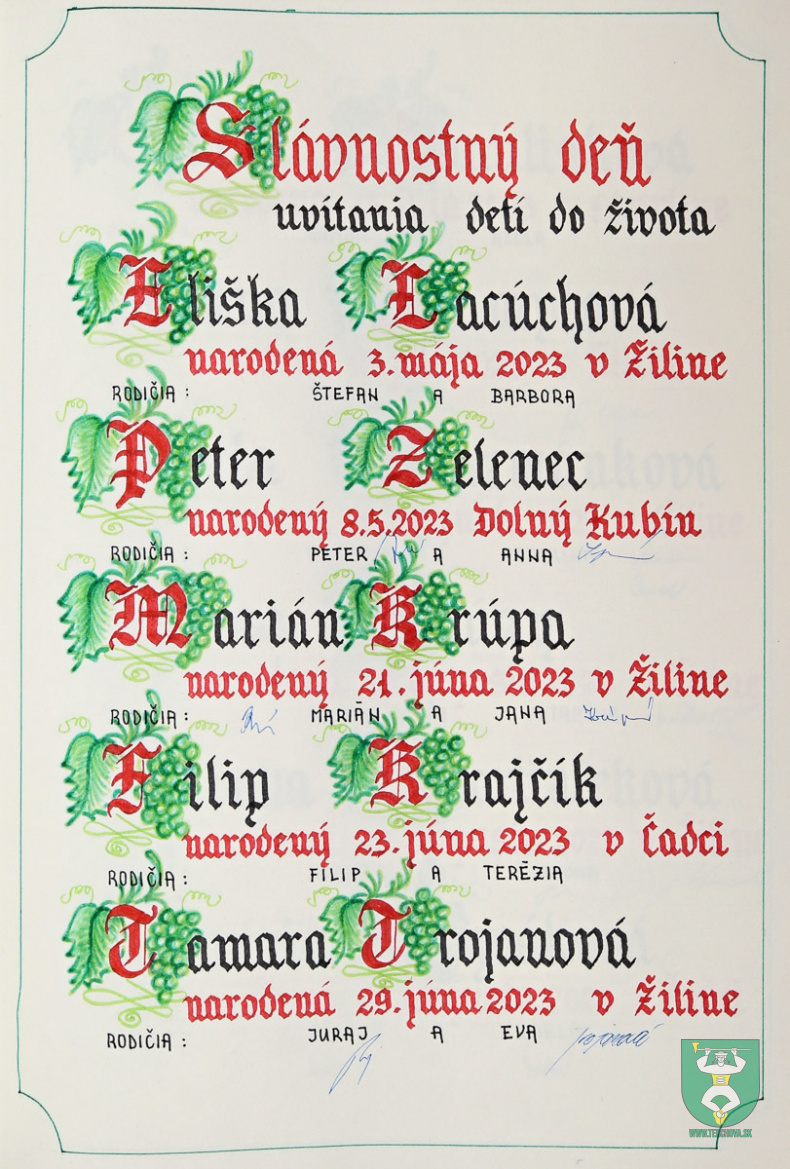 Slávnostný deň
uvítania detí do života
Eliška Lacúchová
narodená 3. mája 2023 v Žiline
RODIČIA: ŠTEFAN A BARBORA
Peter Zelenec
narodený 8.5.2023 Dolný Kubín
RODIČIA: PETER A ANNA
Marián Krúpa
narodený 21. júna 2023 v Žiline
RODIČIA: MARIÁN A JANA
Filip Krajčík
narodený 23. júna 2023 v Čadci
RODIČIA: FILIP A TERÉZIA
Tamara Trojanová
narodená 29. júna 2023 v Žiline
RODIČIA: JURAJ A EVA
WWW.TERCHOVA.SK